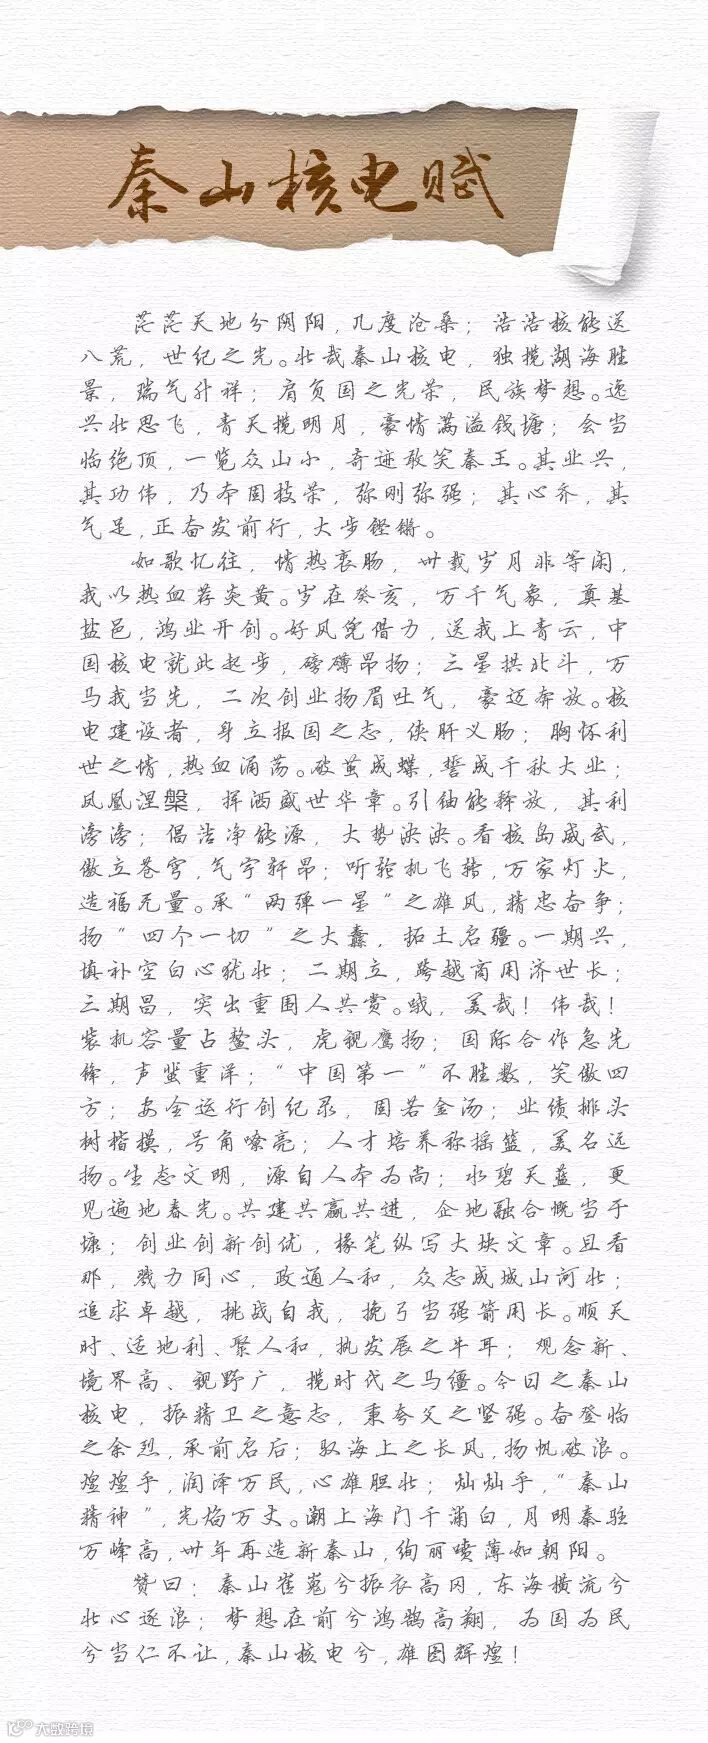 秦山核电赋
茫茫天地兮阴阳，几度沧桑；浩浩核能送
八荒，世纪之光。壮哉秦山核电，独揽湖海胜
景，瑞气升祥；肩负国之光荣，民族梦想。逸
兴壮思飞，青天揽明月，豪情满溢钱塘；会当
临绝顶，一览众山小，奇迹敢笑秦王。其业兴，
其功伟，乃本固枝荣，弥刚弥强；其心齐，其
气足，正奋发前行，大步铿锵。
如歌忆往，情热衷肠，卅载岁月非等闲，
我以热血荐炎黄。岁在癸亥，万千气象，奠基
盐邑，鸿业开创。好风凭借力，送我上青云，中
国核电就此起步，磅礴昂扬；三星拱北斗，万
马我当先，二次创业扬眉吐气，豪迈奔放。核
电建设者，身立报国之志，侠肝义肠；胸怀利
世之情，热血涌荡。破茧成蝶，誓成千秋大业；
凤凰涅槃，挥洒盛世华章。引铀能释放，其利
滂滂；倡洁净能源，大势泱泱。看核岛威武，
傲立苍穹，气宇轩昂；听轮机飞转，万家灯火，
造福无量。承“两弹一星”之雄风，精忠奋争；
扬“四个一切”之大纛，拓土启疆。一期兴，
填补空白心犹壮；二期立，跨越商用济世长；
三期昌，突出重围人共赏。哦，美哉！伟哉！
装机容量占鳌头，虎视鹰扬；国际合作急先
锋，声蜚重洋；“中国第一”不胜数，笑傲四
方；安全运行创纪录，固若金汤；业绩排头
树楷模，号角嘹亮；人才培养称摇篮，美名远
扬。生态文明，源自人本为尚；水碧天蓝，更
见遍地春光。共建共赢共进，企地融合慨当于
慷；创业创新创优，椽笔纵写大块文章。且看
那，戮力同心，政通人和，众志成城山河壮；
追求卓越，挑战自我，挽弓当强箭用长。顺天
时、适地利、聚人和，执发展之牛耳；观念新、
境界高、视野广，揽时代之马缰。今日之秦山
核电，振精卫之意志，秉夸父之坚强。奋登临
之余烈，承前启后；驭海上之长风，扬帆破浪。
煌煌乎，润泽万民，心雄胆壮；灿灿乎，“秦山
精神”，光焰万丈。潮上海门千涌白，月明秦驻
万峰高，卅年再造新秦山，绚丽喷薄如朝阳。
赞曰：秦山崔嵬兮振衣高冈，东海横流兮
壮心逐浪；梦想在前兮鸿鹄高翔，为国为民
兮当仁不让，秦山核电兮，雄图辉煌！
大数跨境